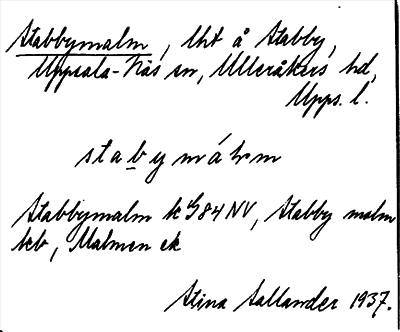 Stabbymalm, lht å Stabby,
Uppsala-Näs sn, Ulleråkers hd,
Upps. l.
Stabbymalm k G84 NV, Stabby malm
teb, Malmen ek
Stina Sallander 1937.